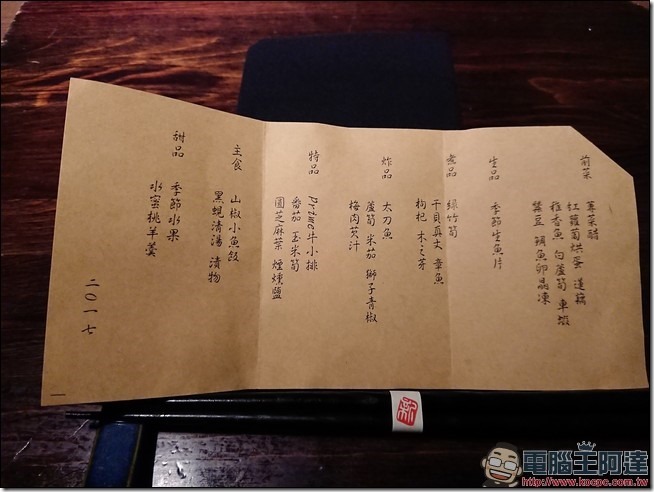 前菜
蓴菜醋
紅蘿蔔烘蛋 蓮藕
稚香魚 白蘆筍 車蝦
蠶豆 鯛魚卵晶凍
生品
季節生魚片
煮品
綠竹筍
干貝真丈 章魚
枸杞 木之芽
炸品
太刀魚
蘆筍 米茄 獅子青椒
梅肉芡汁
特品
Prime牛小排
番茄 玉米筍
圓芝麻葉 煙燻鹽
主食
山椒小魚飯
黑蜆清湯 漬物
甜品
季節水果
水蜜桃羊羹
二〇一七
電腦王阿達
http://www.kocpc.com.tw